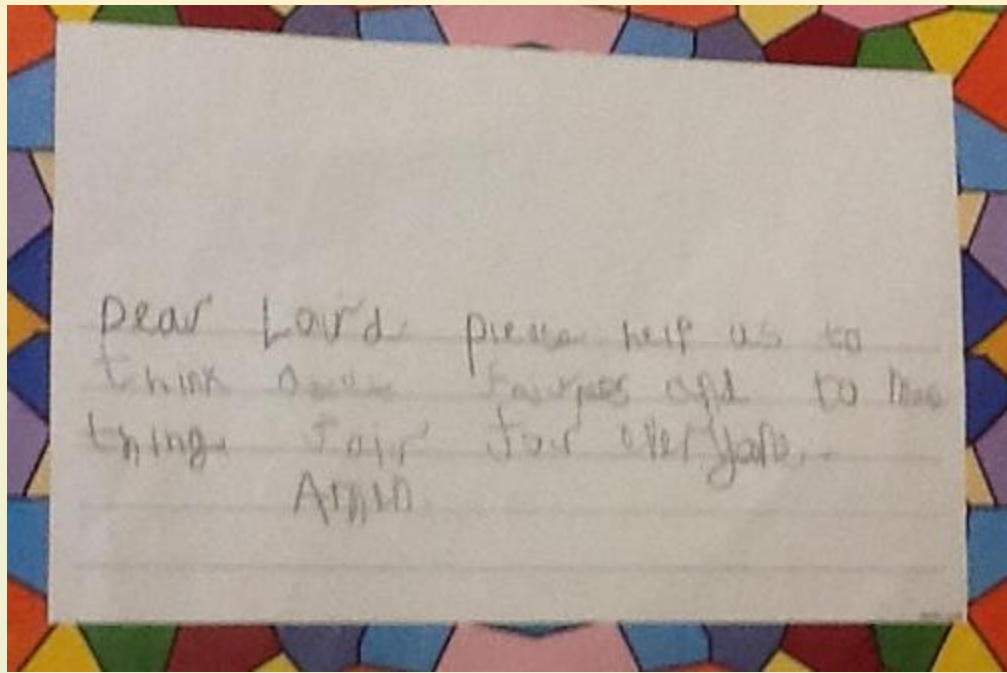 Dear Lourd please help us to
think fairness and to
things fair for everyone.
Amin